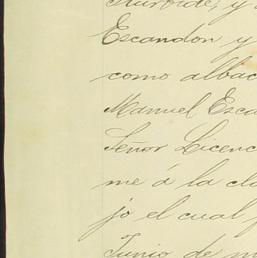 Iturbide, y
Escandon y
como albac
Manuel Esca
Señor Licenc
me á la cla
jo el cual
Junio de m